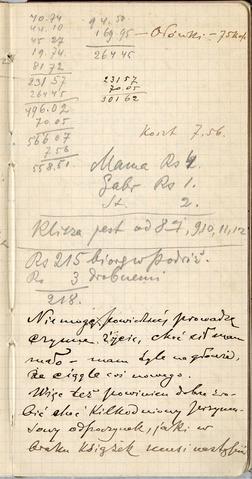 40.74
44.10
45.27
19.74
81.72
231 57
264 45
496.02
70.05
566 07
7 56
558.51
94.50
169 95 — Ołówki — 75 kop
264 45
231 57
70.05
301 62
Koszt 7,56.
Mama Rs 4
Gabr Rs 1.
St. 2.
Klisza jest od 87, 9, 10, 11, 12
Rs 215 biorę w podróż.
Rs 3 drobnemi
218.
Nie mogę powiedzieć prowadzę
czynne życie, choć sił mam
mało — mam tyle na głowie,
że ciągle coś nowego.
Więc też powinien dobrze zro-
bić choć kilkodniowy przymu-
sowy odpoczynek, jaki w
braku książek musi nastąpić